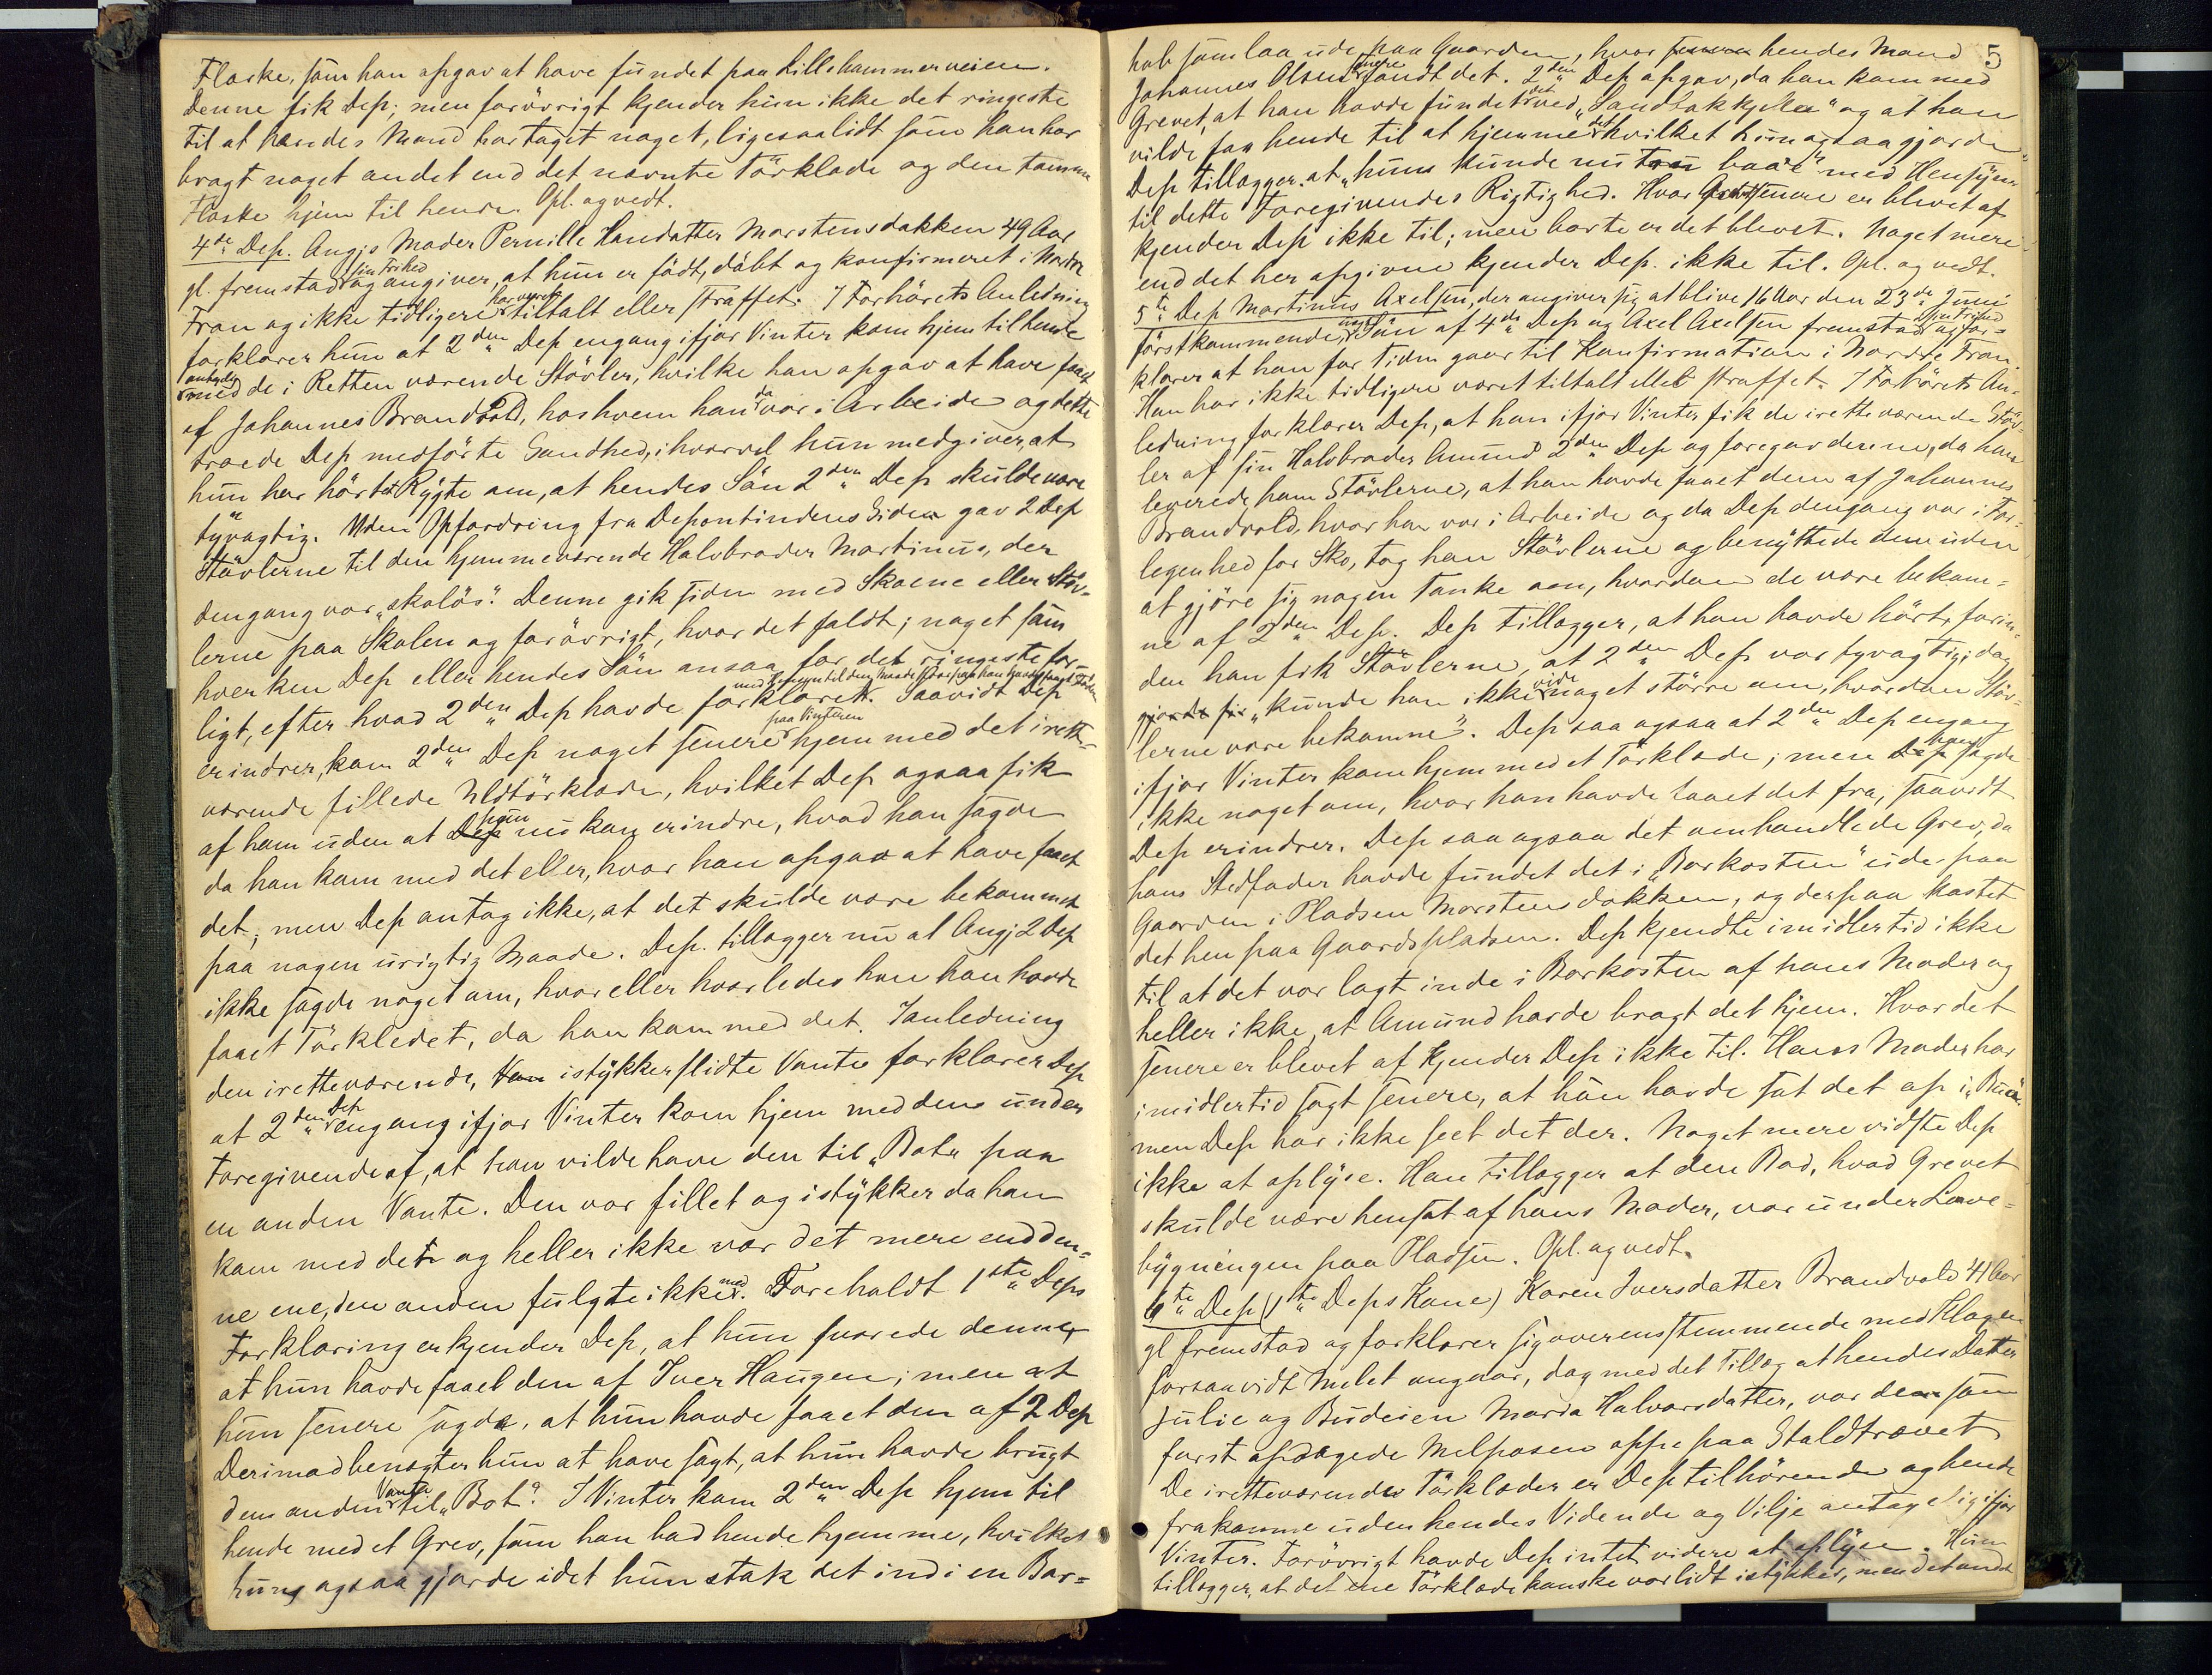 Flaske, som han opgav at have fundet paa Lillehammerveien.
Denne fik Dep; men forövrigt kjender hun ikke det ringeste
til at hendes Mand har taget noget, ligesaalidt som han har
bragt noget andet end det nævnte Törklæde og den tomme
Flaske hjem til hende. Opl. og vedt.
4de Dep. Angjs Moder Pernille Handatter Marstensdakken 49 Aar
gl. fremstod sin Frihed og angiver, at hun er födt, döbt og konfirmeret i Nordre
Fron og ikke tidligere har været tiltalt eller straffet. I Forhörets Anledning
forklarer hun at 2den Dep engang ifjor Vinter kom hjem til hende
med de i Retten værende Stövler, hvilke han opgav at have faaet
af Johannes Brandvold, hos hvem han da var i Arbeide og dette
troede Dep medförte Sandhed, ihvorvel hun medgiver, at
hun har hört et Rygte om, at hendes Sön 2den Dep skulde være
tyvagtig. Uden Opfordring fra Deponentindens Side gav 2 Dep
Stövlerne til den hjemmeværende Halvbroder Martinus, der
dengang var "skolös". Denne gik siden med Skoene eller Stöv-
lerne paa Skolen og forövrigt, hvor det faldt; noget som
hverken Dep eller hendes Sön ansaa for det ringeste far-
ligt, efter hvad 2den Dep havde forklaret. Saavidt Dep
erindrer, kom 2den Dep noget senere paa Vinteren hjem med det irette-
værende fillede Uldtörklæde, hvilket Dep ogsaa fik
af ham uden at hun nu kan erindre, hvad han sagde
da han kom med det eller, hvor han opgav at have faaet
det; men Dep antog ikke, at det skulde være bekommet
paa nogen urigtig Maade. Dep. tillægger nu at Angj 2 Dep
ikke sagde noget om, hvor eller hvorledes han havde
faaet Törklædet, da han kom med det. I Anledning
den iretteværende, istykkerslidte Vante forklarer Dep
at 2den Dep engang ifjor Vinter kom hjem med den under
Foregivende af, at han vilde have den til "Bot" paa
en anden Vante. Den var fillet og istykker da han
kom med det og heller ikke var det mere end den-
ne ene, den anden fulgte ikke med. Foreholdt 1ste Deps
Forklaring erkjender Dep, at hun svarede denne,
at hun havde faaet den af Iver Haugen; men at
hun senere sagde, at hun havde faaet den af 2 Dep
Derimod benægter hun at have sagt, at hun havde brugt
den anden Vante til "Bot". I Vinter kom 2den Dep hjem til
hende med et Grev, som han bad hende hjemme, hvilket
hun ogsaa gjorde idet hun stak det ind i en Bar-
5
hob som laa ude paa Gaarden, hvor hendes Mand
Johannes Olsen senere fandt det. 2den Dep opgav, da han kom med
Grevet, at han havde fundet det ved "Sandbakkjella" og at han
vilde faa hende til at hjemme det hvilket hun ogsaa gjorde.
Dep tillægger at "hun kunde nu tru baa'e" med Hensyn
til dette Foregivendes Rigtighed. Hvor Grevet senere er blevet af
kjender Dep ikke til; men borte er det blevet. Noget mere
end det her opgivne kjender Dep. ikke til. Opl. og vedt.
5te Dep Martinus Axelsen, der angiver sig at blive 16 Aar den 23de Juni
förstkommende, Sön af 4de Dep og Axel Axelsen fremstod sin Frihed og for-
klarer at han for Tiden gaar til Konfirmation i Nordre Fron.
Han har ikke tidligere været tiltalt eller straffet. I Forhörets An-
ledning forklarer Dep, at han ifjor Vinter fik de iretteværende Stöv-
ler af sin Halvbroder Amund 2den Dep og foregav denne, da han
leverede ham Stövlerne, at han havde faaet dem af Johannes
Brandvold, hvor han var i Arbeide og da Dep dengang var i For-
legenhed for Sko, tog han Stövlerne og benyttede dem uden
at gjöre sig nogen Tanke om, hvordan de vare bekom-
ne af 2den Dep. Dep tillægger, at han havde hört, forin-
den han fik Stövlerne, at 2den Dep var tyvagtig; dog
"kunde han ikke vide noget större om, hvordan Stöv-
lerne vare bekomne". Dep saa ogsaa at 2den Dep engang
ifjor Vinter kom hjem med et Törklæde; men han sagde
ikke noget om, hvor han havde taget det fra, saavidt
Dep erindrer. Dep saa ogsaa det omhandlede Grev, da
hans Stedfader havde fundet det i "Barkosten" ude paa
Gaarden i Pladsen Marstensdakken, og derpaa kastet
det hen paa Gaardspladsen. Dep kjendte imidlertid ikke
til at det var lagt inde i Barkosten af hans Moder og
heller ikke, at Amund havde bragt det hjem. Hvor det
senere er blevet af kjender Dep ikke til. Hans Moder har
imidlertid sagt senere, at hun havde sat det op i "Buen"
men Dep har ikke seet det der. Noget mere vidste Dep
ikke at oplyse. Han tillægger at den Bod, hvor Grevet
skulde være hensat af hans Moder, var under Laave-
bygningen paa Pladsen. Opl. og vedt.
6te Dep (1ste Deps Kone) Karen Iversdatter Brandvold 41 Aar
gl fremstod og forklarer sig overensstemmende med Klagen
forsaavidt Melet angaar, dog med det Tillæg at hendes Datter
Julie og Budeien Marda Halvorsdatter, var dem som
först opdagede Melposen oppe paa Staldtrævet
De iretteværende Törklæder er Dep tilhörende og hende
frakomne uden hendes Vidende og Vilje antagelig ifjor
Vinter. Forövrigt havde Dep intet videre at oplyse. Hun
tillægger, at det ene Törklæde kanske var lidt istykker, men det andet